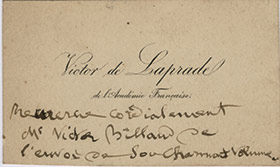 Victor de Laprade
de l'Académie Française.
Remercie cordialement
Mr Victor Billaud de
l'envoi de son charmant volume